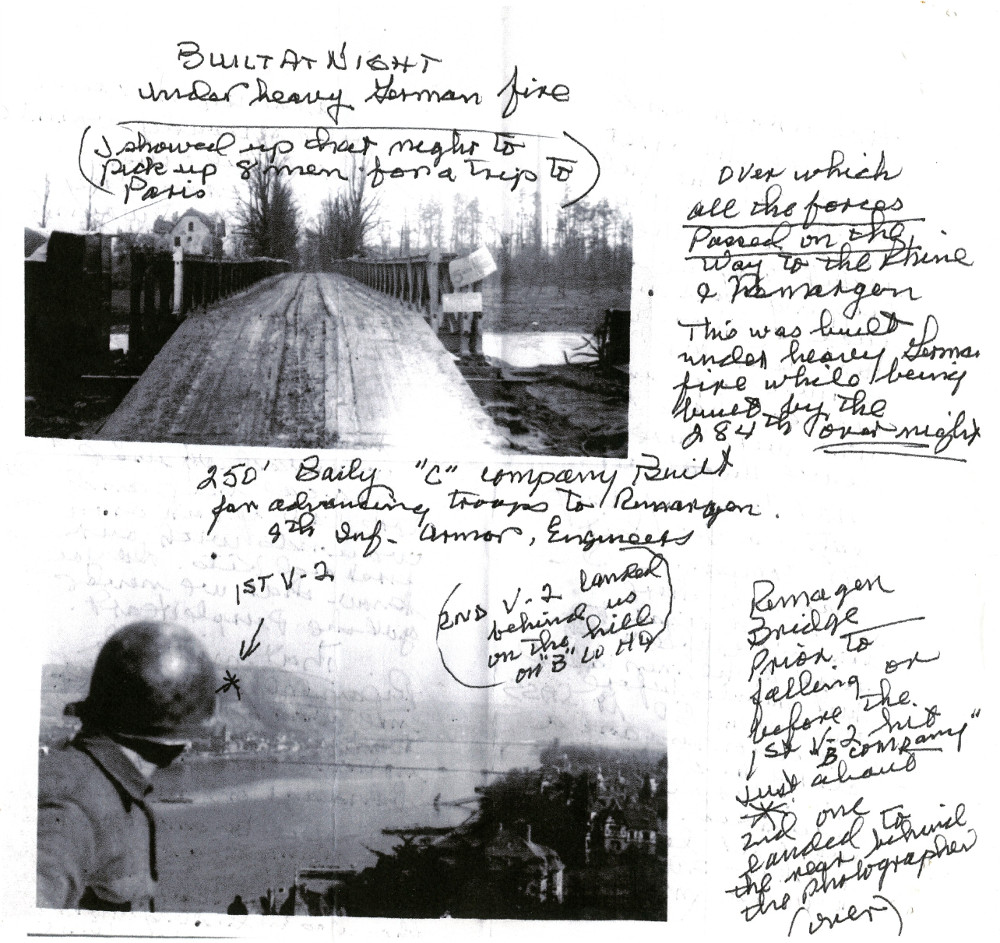 BUILT AT NIGHT
under heavy German fire
(I showed up that night to
pick up 8 men for a trip to
Paris)
over which
all the forces
Passed on the
way to the Rhine
& Remargen
This was built
under heavy German
fire while being
built by the
284th over night
250' Baily "C" company Built
for advancing troops to Remargen.
9th Inf- Armor, Engineers
1ST V-2
(2ND V-2 landed
behind us
on the hill
on "B" CO HQ)
*
Remagen
Bridge
Prior to
falling or
before the
1ST V-2 hit
"B company"
Just about
*
2nd one
landed to
the rear behind
the photographer
(over)